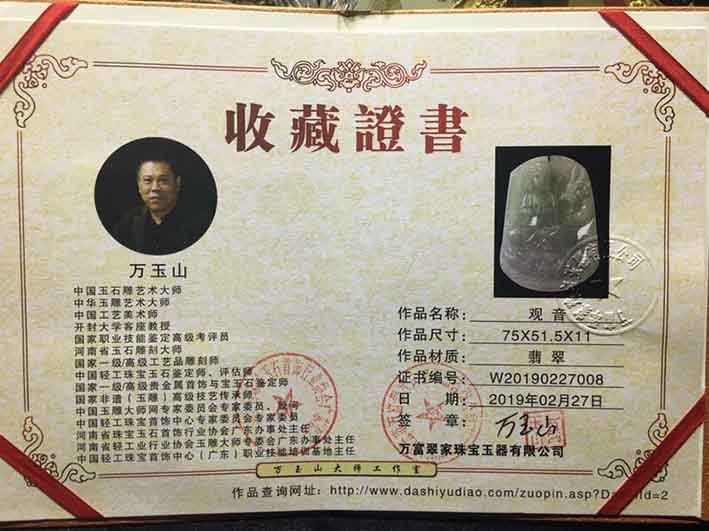 收藏證書
万玉山
中国玉石雕艺术大师
中华玉雕艺术大师
中国工艺美术师
开封大学客座教授
国家职业技能鉴定高级考评员
河南省玉石雕刻大师
国家一级/高级工艺品雕刻师
中国轻工珠宝玉石鉴定师、评估师
国家一级/高级贵金属首饰与宝玉石鉴定师
国家非遗(玉雕)高级技艺传承师
中国玉雕大师网专家委员会专家委员、顾问
中国轻工珠宝首饰中心专家委员会专家委员
河南省珠宝玉石首饰行业协会广东办事处主任
河南省轻工业行业协会玉雕大师专委会广东办事处主任
中国轻工珠宝首饰中心(广东)职业技能培训基地主任
作品名称: 观音
作品尺寸: 75X51.5X11
作品材质: 翡翠
证书编号: W20190227008
日期: 2019年02月27日
签章: 万玉山
万富翠家珠宝玉器有限公司
万玉山大师工作室
作品查询网址: http://www.dashiyudiao.com/zuopin.asp?D
Id=2